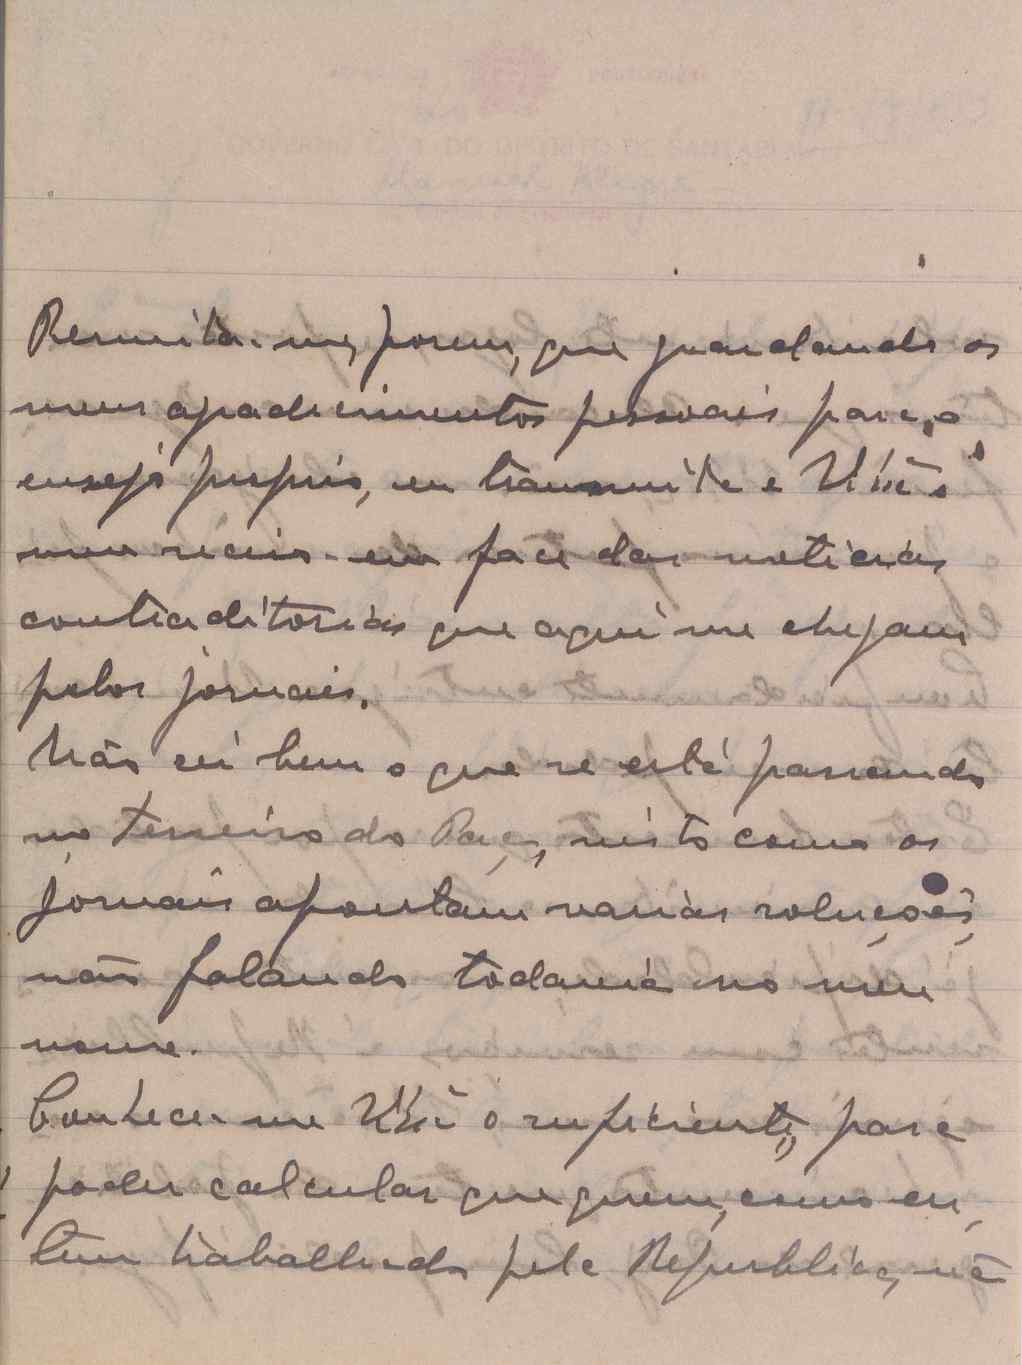 Permita-me, porem, que guardando os
meus agradecimentos pessoais para o
ensejo proprio, eu transmita a V. Exª o
meu receio em face das noticias
contraditorias que aqui me chegam
pelos jornais.
Não sei bem o que se está passando
no Terreiro do Paço, visto como os
jornais apontam varias soluções,
não falando todavia no meu
nome.
Conhece-me V. Exª o suficiente, para
poder calcular que quem, como eu,
tem trabalhado pela Republica, não